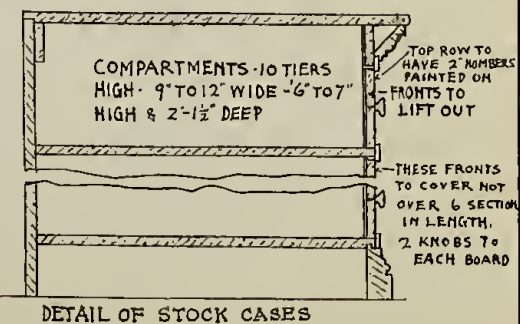 COMPARTMENTS-10 TIERS
HIGH- 9" TO 12" WIDE-6" TO 7"
HIGH & 2'-1½" DEEP
TOP ROW TO
HAVE 2" NUMBERS
PAINTED ON
FRONTS TO
LIFT OUT
THESE FRONTS
TO COVER NOT
OVER 6 SECTION
IN LENGTH,
2 KNOBS TO
EACH BOARD
DETAIL OF STOCK CASES